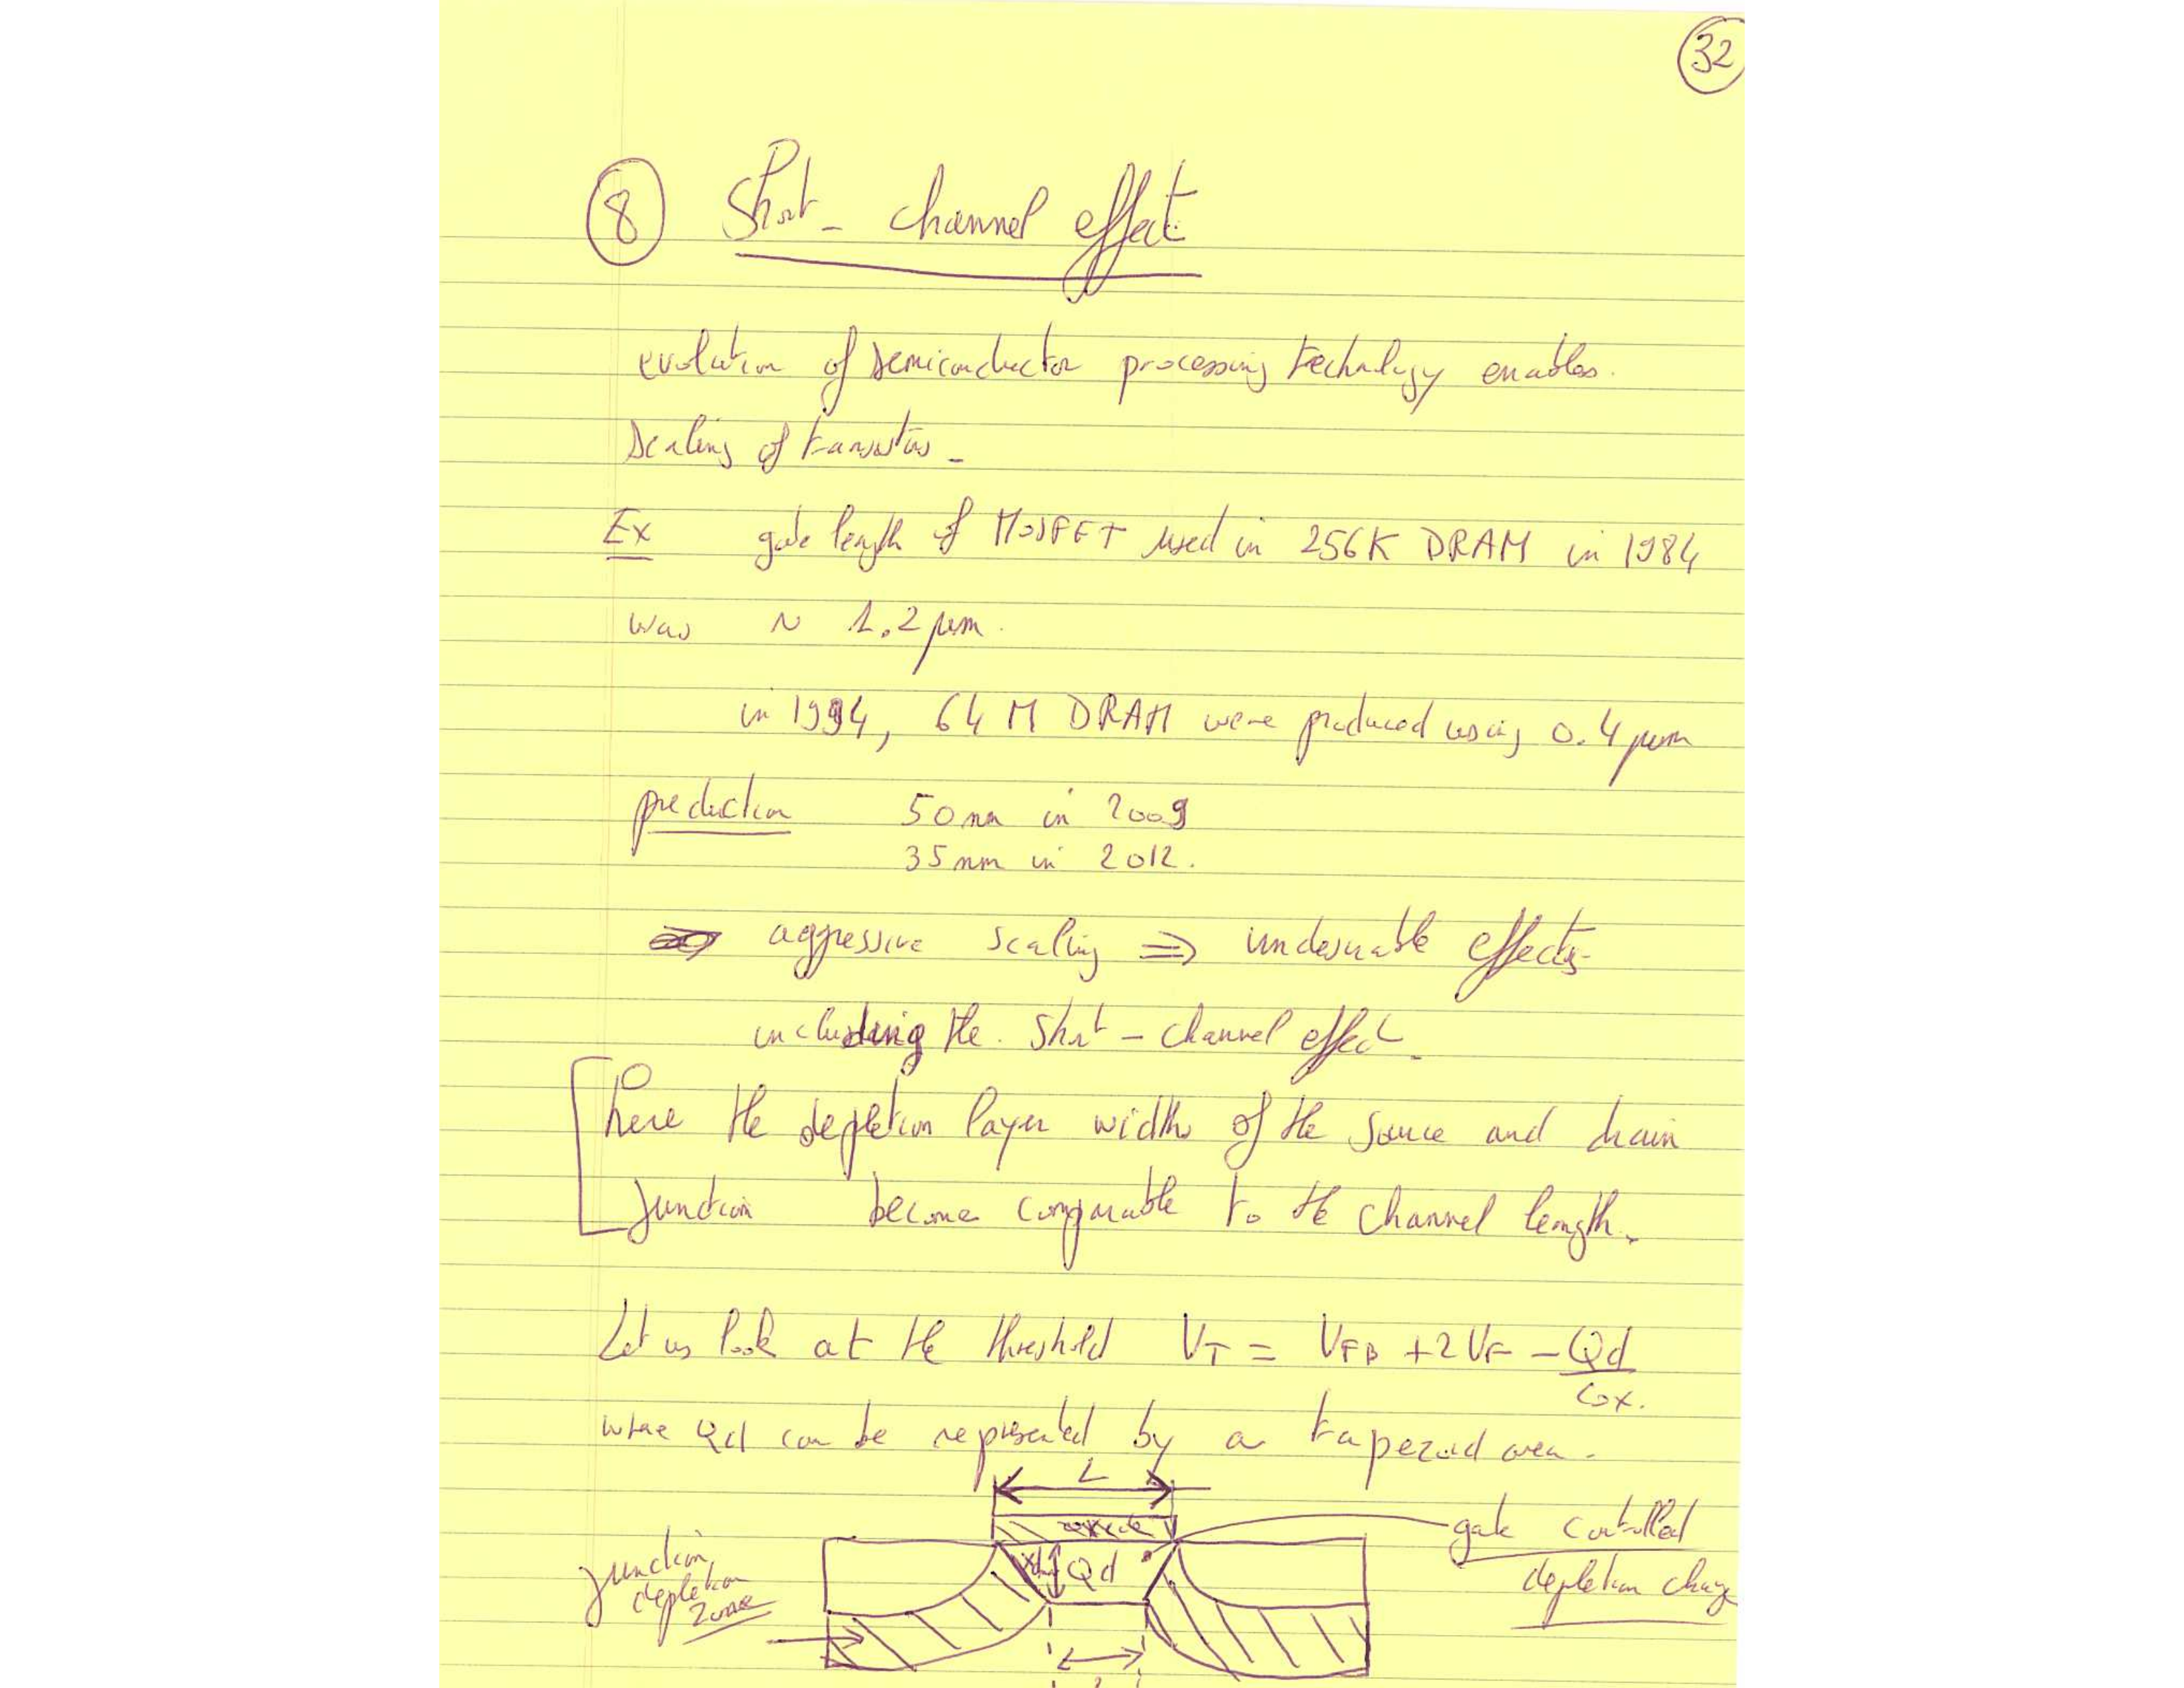 32
8 Short - channel effect
evolution of semiconductor processing technology enables.
scaling of transistors -
Ex gate length of MOSFET used in 256K DRAM in 1984
was ~ 1.2 μm.
in 1994, 64 M DRAM were produced using 0.4 μm
prediction 50 nm in 2009
35 nm in 2012.
aggressive scaling ⇒ undesirable effects
including the. Short - channel effect.
here the depletion layer widths of the source and drain
junction become comparable to the channel length.
Let us look at the threshold V_T = V_FB + 2 V_F - Qd / Cox.
where Qd can be represented by a trapezoid area.
L
oxide
gate controlled
depletion charge
junction
depletion
zone
xd Qd